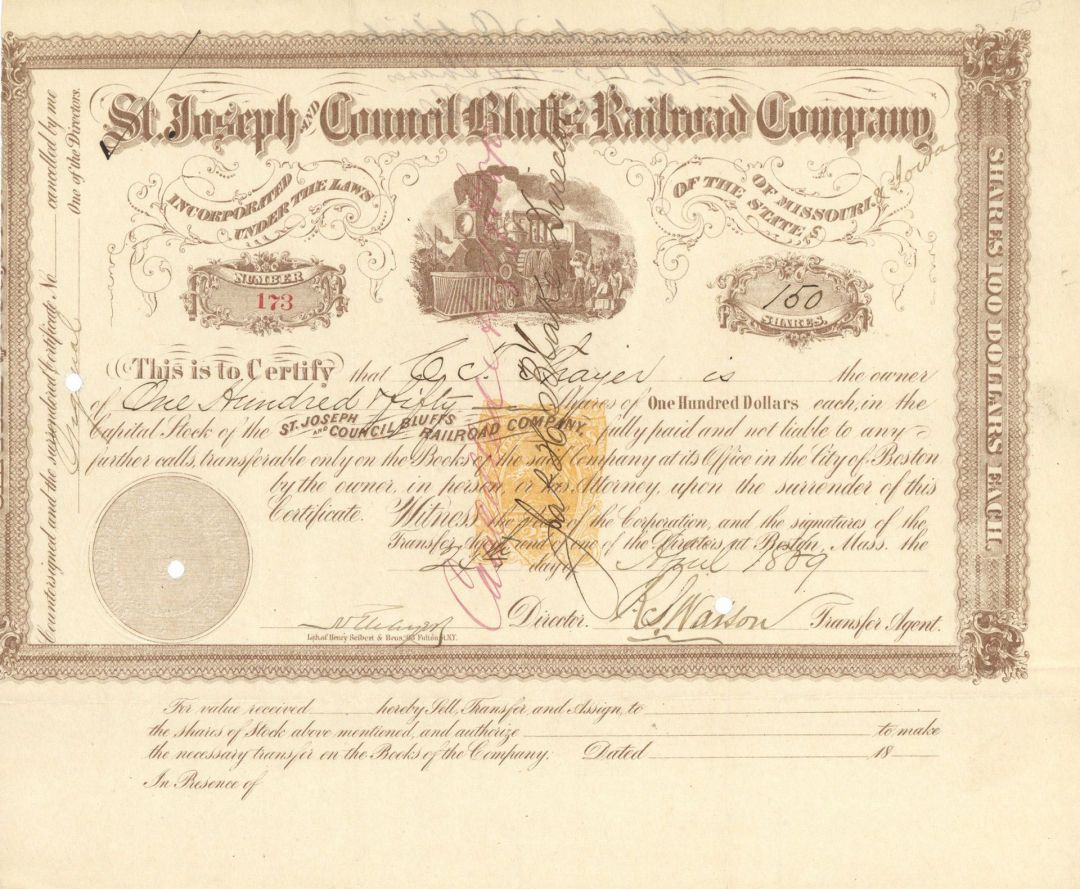 St. Joseph AND Council Bluffs Railroad Company,
INCORPORATED
UNDER THE LAWS
OF THE STATES
OF MISSOURI & Iowa
NUMBER
173
150
SHARES.
This is to Certify that is the owner
of One Hundred Fifty Shares of One Hundred Dollars each, in the
Capital Stock of the ST. JOSEPH AND COUNCIL BLUFFS RAILROAD COMPANY, fully paid and not liable to any
further calls, transferable only on the Books of the said Company at its Office in the City of Boston
by the owner, in person, or his Attorney, upon the surrender of this
Certificate. Witness the seal of the Corporation, and the signatures of the
Transfer Agent and of one of the Directors, at Boston, Mass. the
day of April 1869
Director. Transfer Agent.
Lith. of Henry Seibert & Bros. 93 Fulton St. N.Y.
Countersigned and the surrendered Certificate No Original cancelled by me
One of the Directors.
SHARES 100 DOLLARS EACH.
For value received hereby Sell, Transfer, and Assign, to
the shares of Stock above mentioned, and authorize to make
the necessary transfer on the Books of the Company. Dated 18
In Presence of